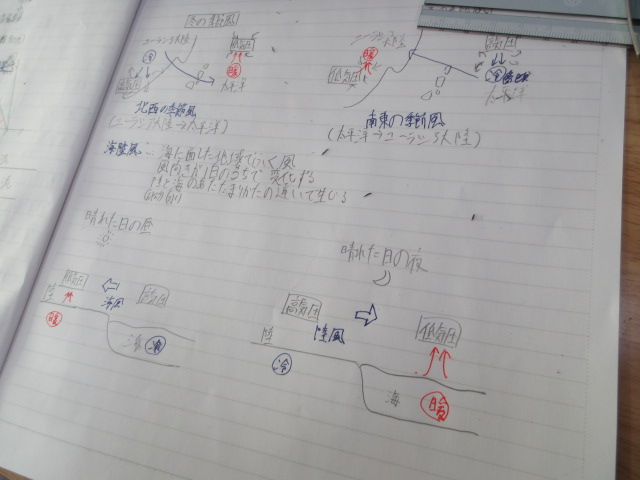 冬の季節風
ユーラシア大陸
冷
高気圧
低気圧
暖
太平洋
北西の季節風
(ユーラシア大陸→太平洋)
ユーラシア大陸
暖
低気圧
高気圧
冷
太平洋
南東の季節風
(太平洋→ユーラシア大陸)
海陸風…海に面した地域でふく風
風向きが1日のうちで変化する
陸と海のあたたまりかたの違いで生じる
晴れた日の昼
低気圧
海風
高気圧
陸
暖
海
冷
晴れた日の夜
高気圧
陸風
低気圧
陸
冷
海
暖